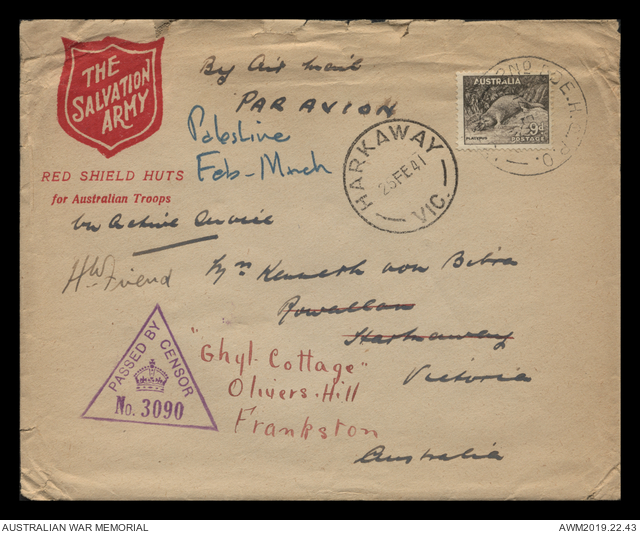 THE
SALVATION
ARMY
RED SHIELD HUTS
for Australian Troops
By Air Mail
PAR AVION
Palestine
Feb-March
AUSTRALIA
PLATYPUS
9d
POSTAGE
HARKAWAY
26FE41
VIC.
on Active Service
Kenneth von Bibra
Rowallan
Harkaway
Victoria
"Ghyl-Cottage"
Olivers. Hill
Frankston
Australia
PASSED BY CENSOR
No. 3090
AUSTRALIAN WAR MEMORIAL
AWM2019.22.43